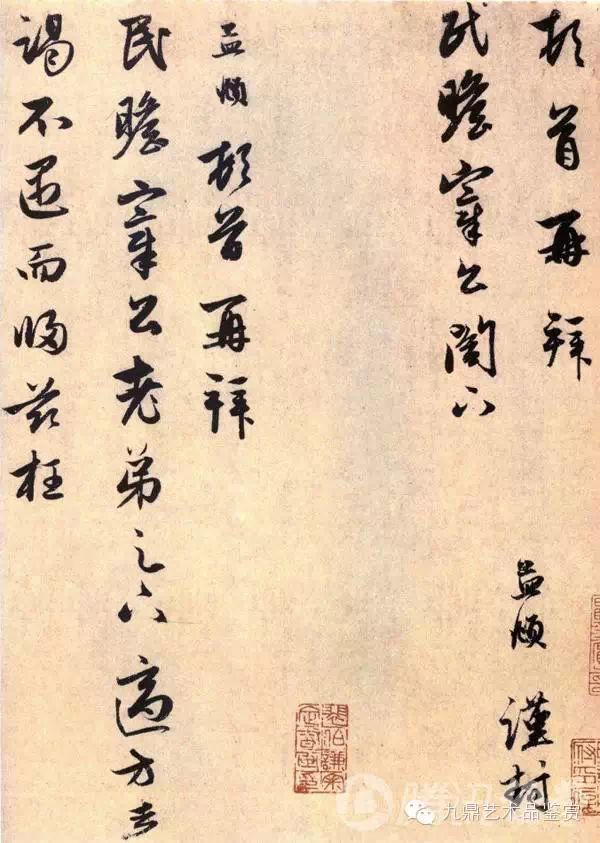 頓首再拜
民瞻宰公閣下
孟頫 謹封
孟頫頓首再拜
民瞻宰公老弟足下適方走
謁不遇而歸茲枉
九鼎艺术品鉴赏